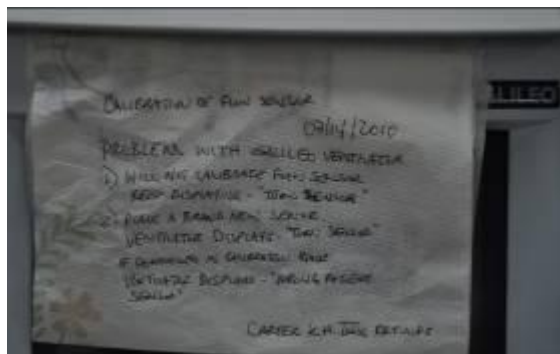 CALIBRATION OF FLOW SENSOR
PROBLEMS WITH GALILEO VENTILATOR
1) WILL NOT CALIBRATE FLOW SENSOR
KEEP DISPLAYING - "TURN SENSOR"
2) PLACE A BRAND NEW SENSOR
VENTILATOR DISPLAYS - "TURN SENSOR"
IF CONTINUED IN CALIBRATION
VENTILATOR DISPLAYS - "WRONG PATIENT
SENSOR"
CARTER
LILEO